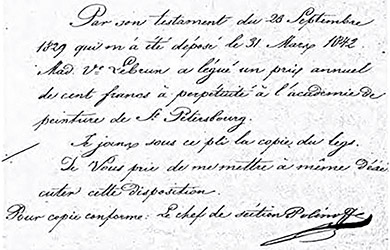 Par son testament du 28 Septembre
1829 qui m'a été déposé le 31 Mars 1842
Mad. Ve Lebrun a légué un prix annuel
de cent francs à perpétuité à l'académie de
peinture de St Pétersbourg.
Je joins sous ce pli la copie du legs.
Je Vous prie de me mettre à même d'éxé-
cuter cette disposition.
Pour copie conforme: Le chef de séction Polénoff